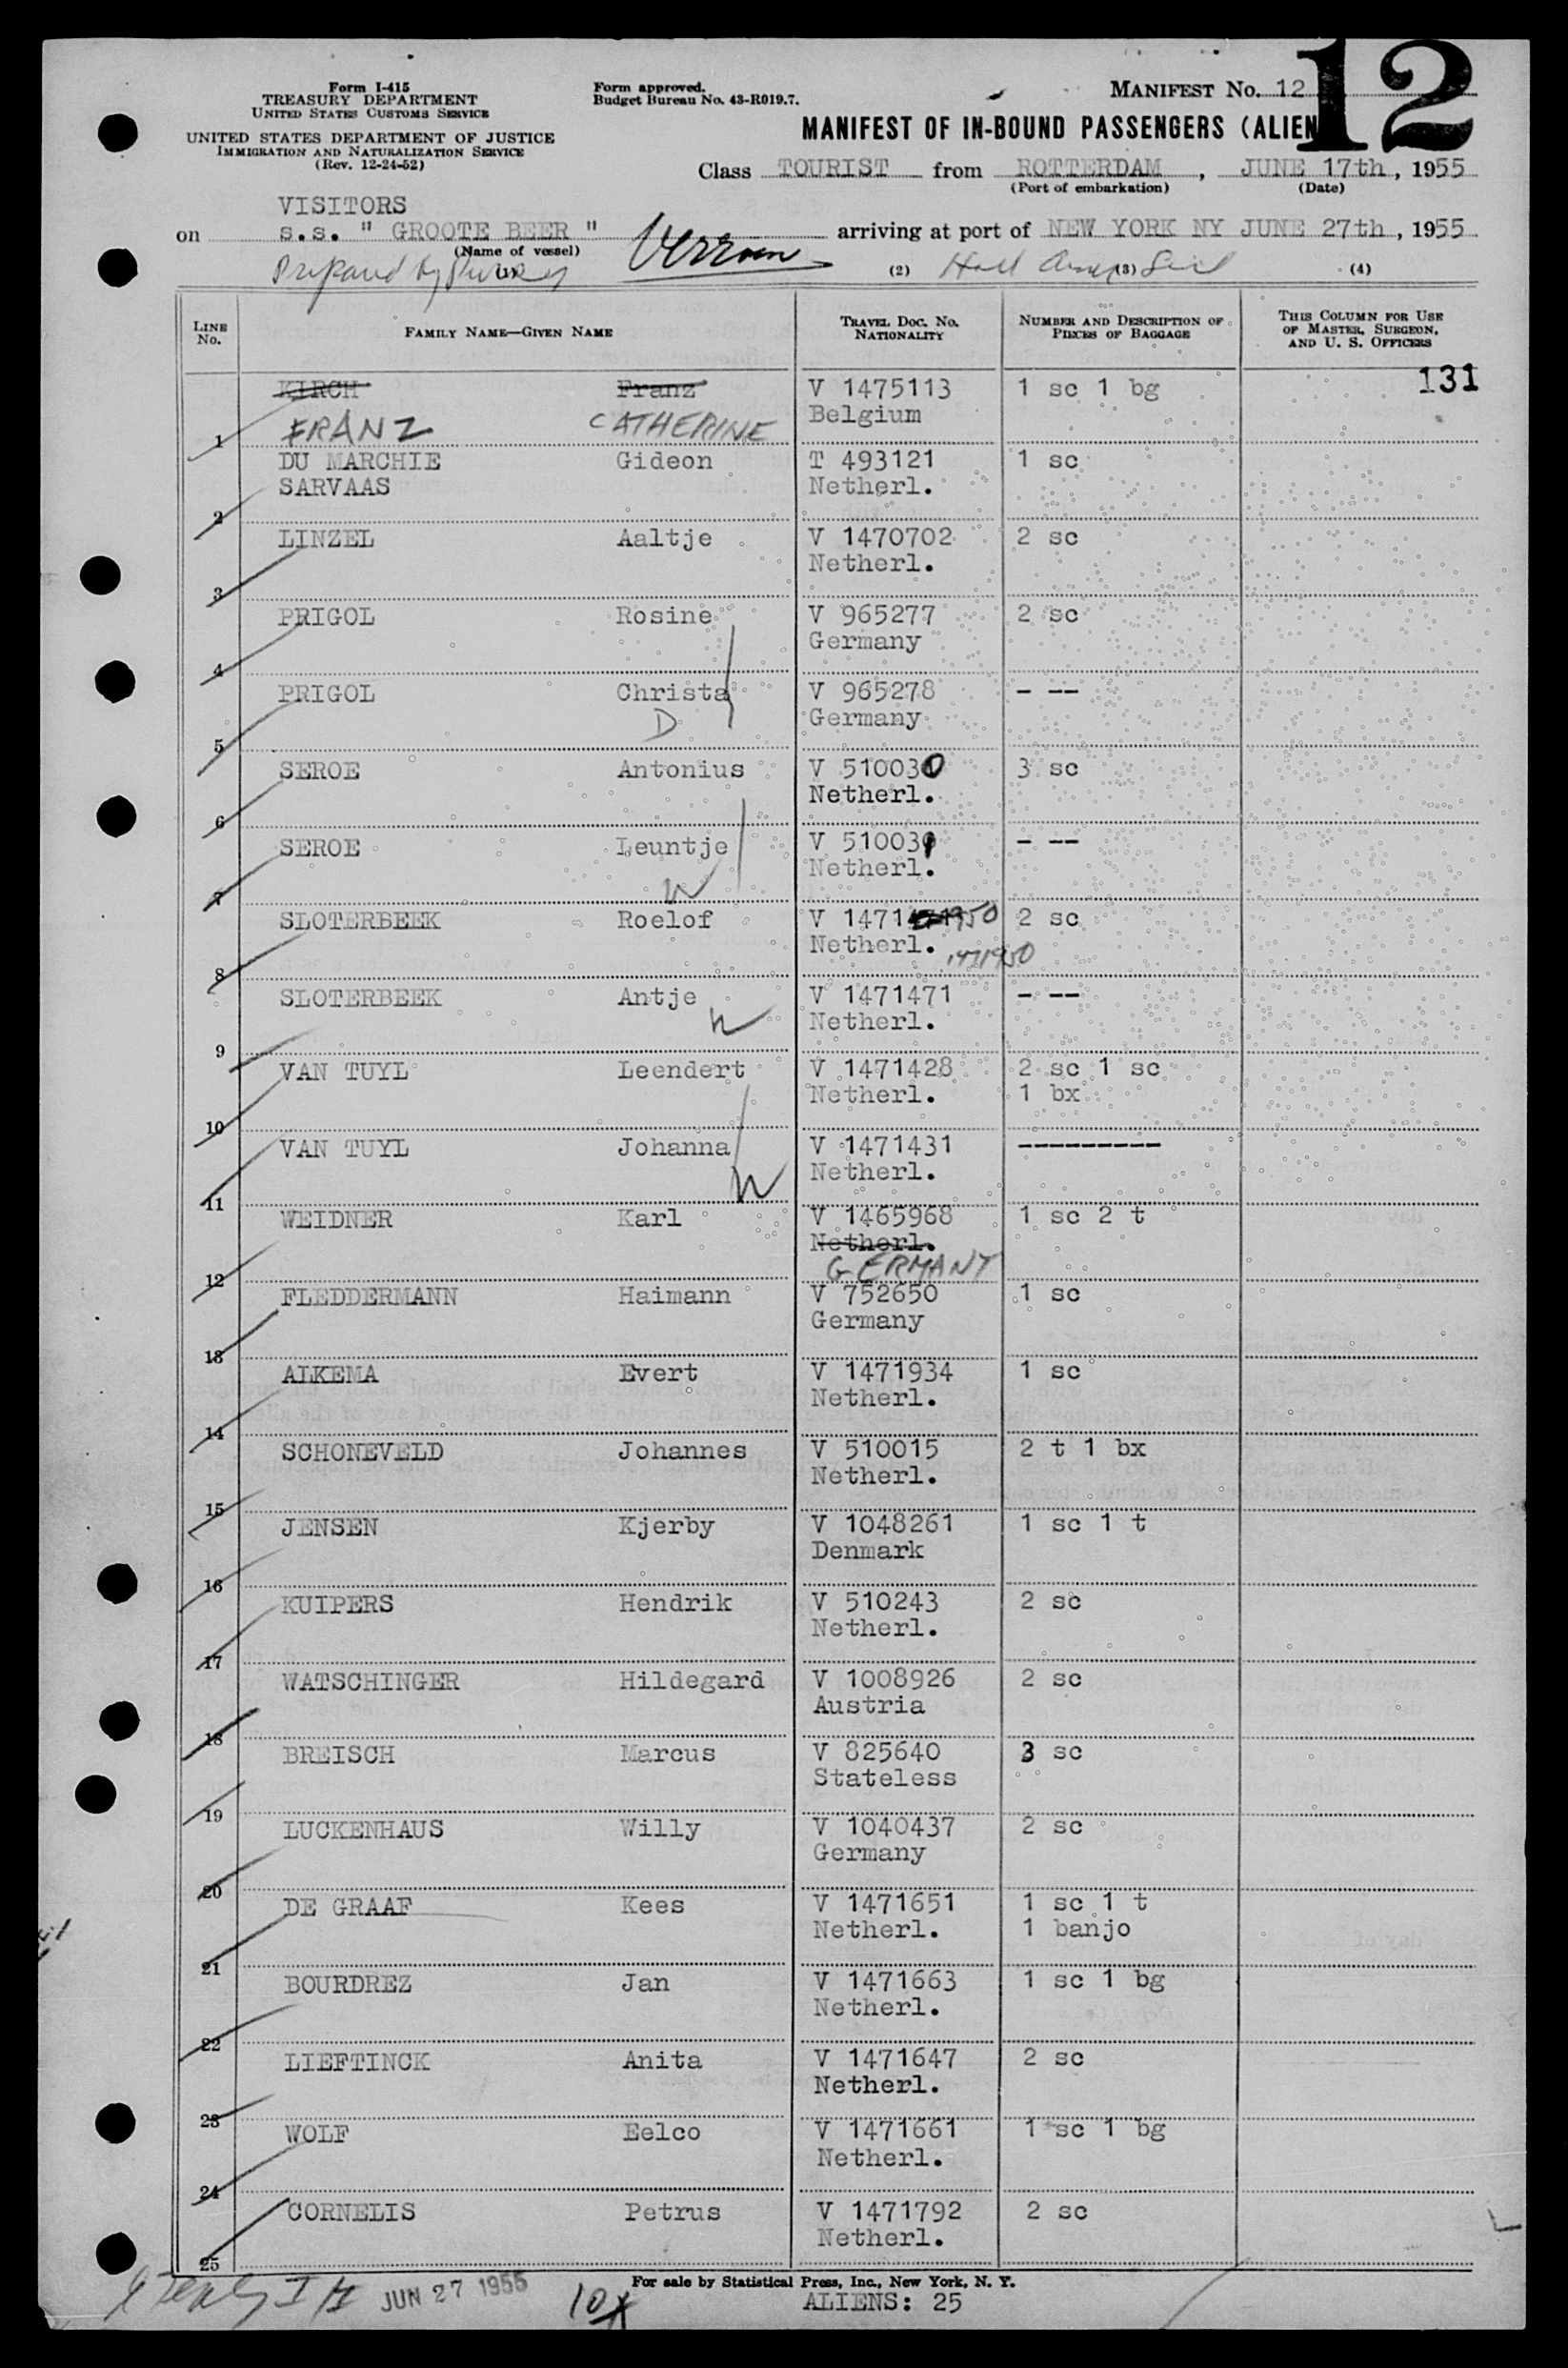 Form I-415
TREASURY DEPARTMENT
UNITED STATES CUSTOMS SERVICE
UNITED STATES DEPARTMENT OF JUSTICE
IMMIGRATION AND NATURALIZATION SERVICE
(Rev. 12-24-52)
Form approved.
Budget Bureau No. 43-R019.7.
MANIFEST No. 12
12
MANIFEST OF IN-BOUND PASSENGERS (ALIEN
Class TOURIST from ROTTERDAM, JUNE 17th, 1955
(Port of embarkation) (Date)
VISITORS
on s.s. " GROOTE BEER " arriving at port of NEW YORK NY JUNE 27th, 1955
(Name of vessel)
Prepared by
(2) (3) (4)
LINE No. FAMILY NAME—GIVEN NAME TRAVEL DOC. No. NATIONALITY NUMBER AND DESCRIPTION OF PIECES OF BAGGAGE THIS COLUMN FOR USE OF MASTER, SURGEON, AND U. S. OFFICERS
131
KIRCH Franz V 1475113 1 sc 1 bg
1 FRANZ CATHERINE Belgium
DU MARCHIE Gideon T 493121 1 sc
SARVAAS Netherl.
2
LINZEL Aaltje V 1470702 2 sc
Netherl.
3
PRIGOL Rosine V 965277 2 sc
Germany
4
PRIGOL Christa V 965278 - --
D Germany
5
SEROE Antonius V 510030 3 sc
Netherl.
6
SEROE Leuntje V 510031 - --
W Netherl.
7
SLOTERBEEK Roelof V 1471 950 2 sc
Netherl. 1471950
8
SLOTERBEEK Antje V 1471471 - --
W Netherl.
9
VAN TUYL Leendert V 1471428 2 sc 1 sc
Netherl. 1 bx
10
VAN TUYL Johanna V 1471431 ---------
W Netherl.
11
WEIDNER Karl V 1465968 1 sc 2 t
Netherl.
12 GERMANY
FLEDDERMANN Haimann V 752650 1 sc
Germany
13
ALKEMA Evert V 1471934 1 sc
Netherl.
14
SCHONEVELD Johannes V 510015 2 t 1 bx
Netherl.
15
JENSEN Kjerby V 1048261 1 sc 1 t
Denmark
16
KUIPERS Hendrik V 510243 2 sc
Netherl.
17
WATSCHINGER Hildegard V 1008926 2 sc
Austria
18
BREISCH Marcus V 825640 3 sc
Stateless
19
LUCKENHAUS Willy V 1040437 2 sc
Germany
20
DE GRAAF Kees V 1471651 1 sc 1 t
Netherl. 1 banjo
21
BOURDREZ Jan V 1471663 1 sc 1 bg
Netherl.
22
LIEFTINCK Anita V 1471647 2 sc
Netherl.
23
WOLF Eelco V 1471661 1 sc 1 bg
Netherl.
24
CORNELIS Petrus V 1471792 2 sc
Netherl.
25
For sale by Statistical Press, Inc., New York, N. Y.
JUN 27 1955
ALIENS: 25